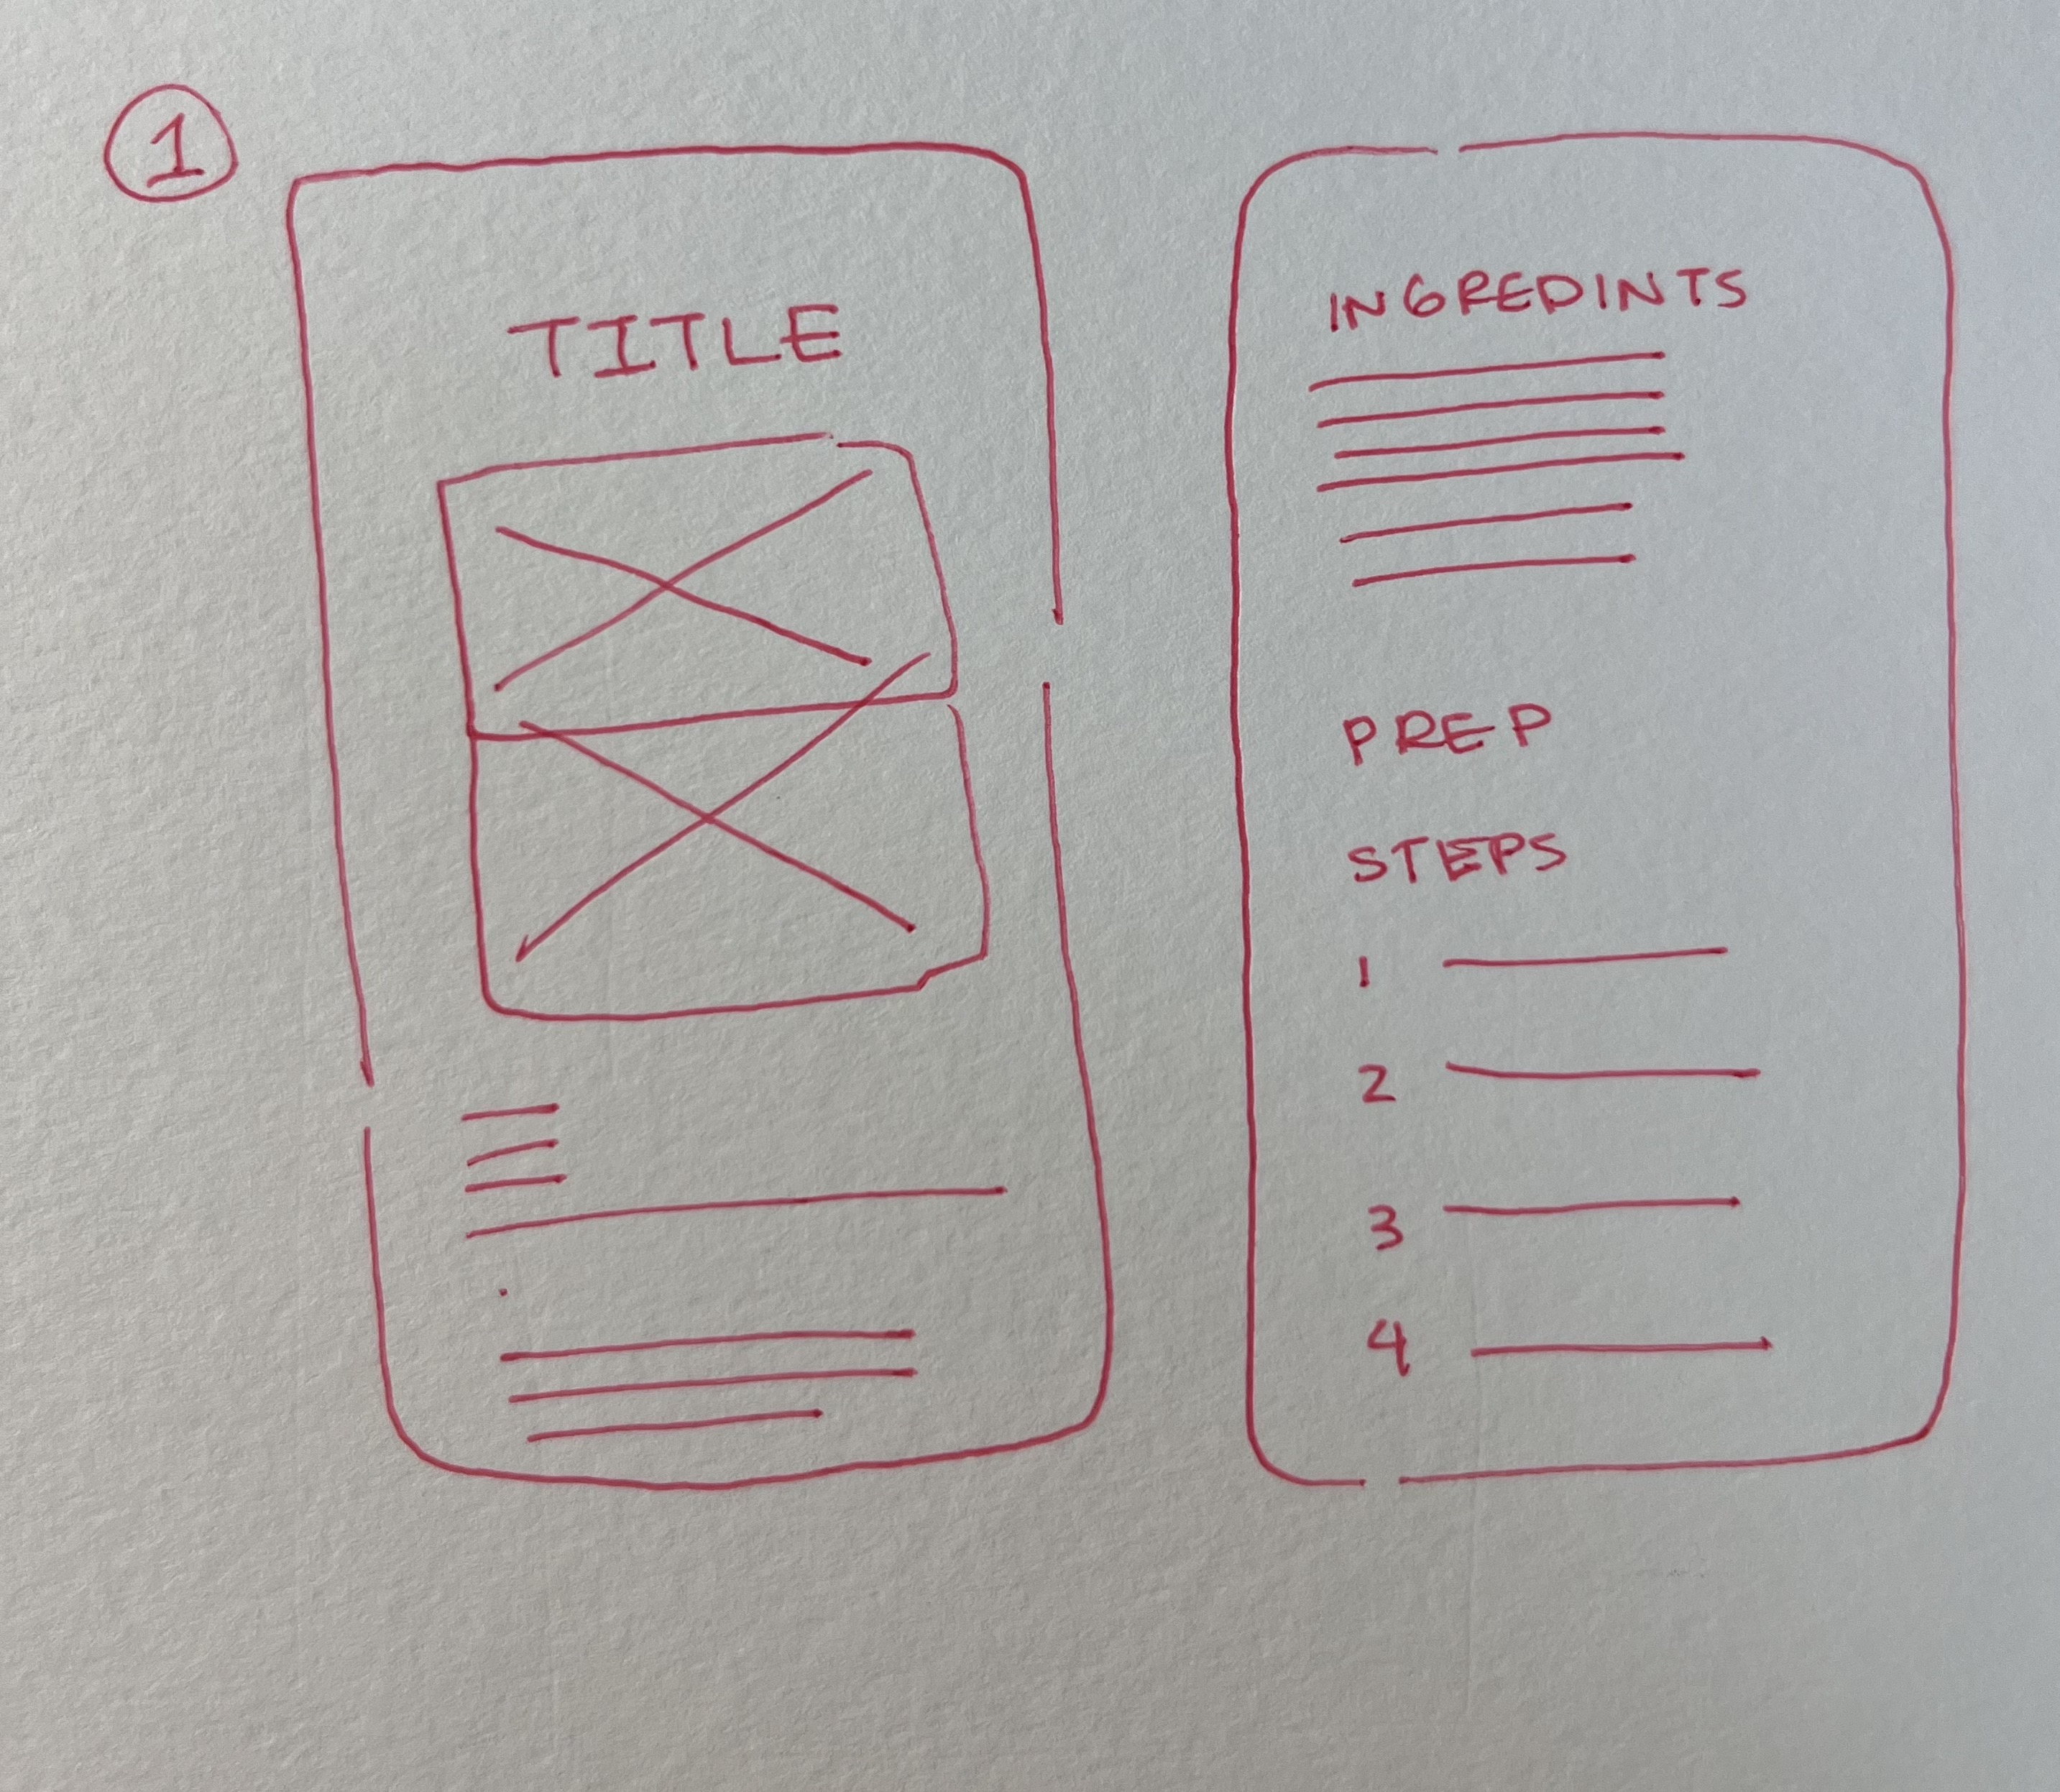 1
TITLE
INGREDINTS
PREP
STEPS
1
2
3
4